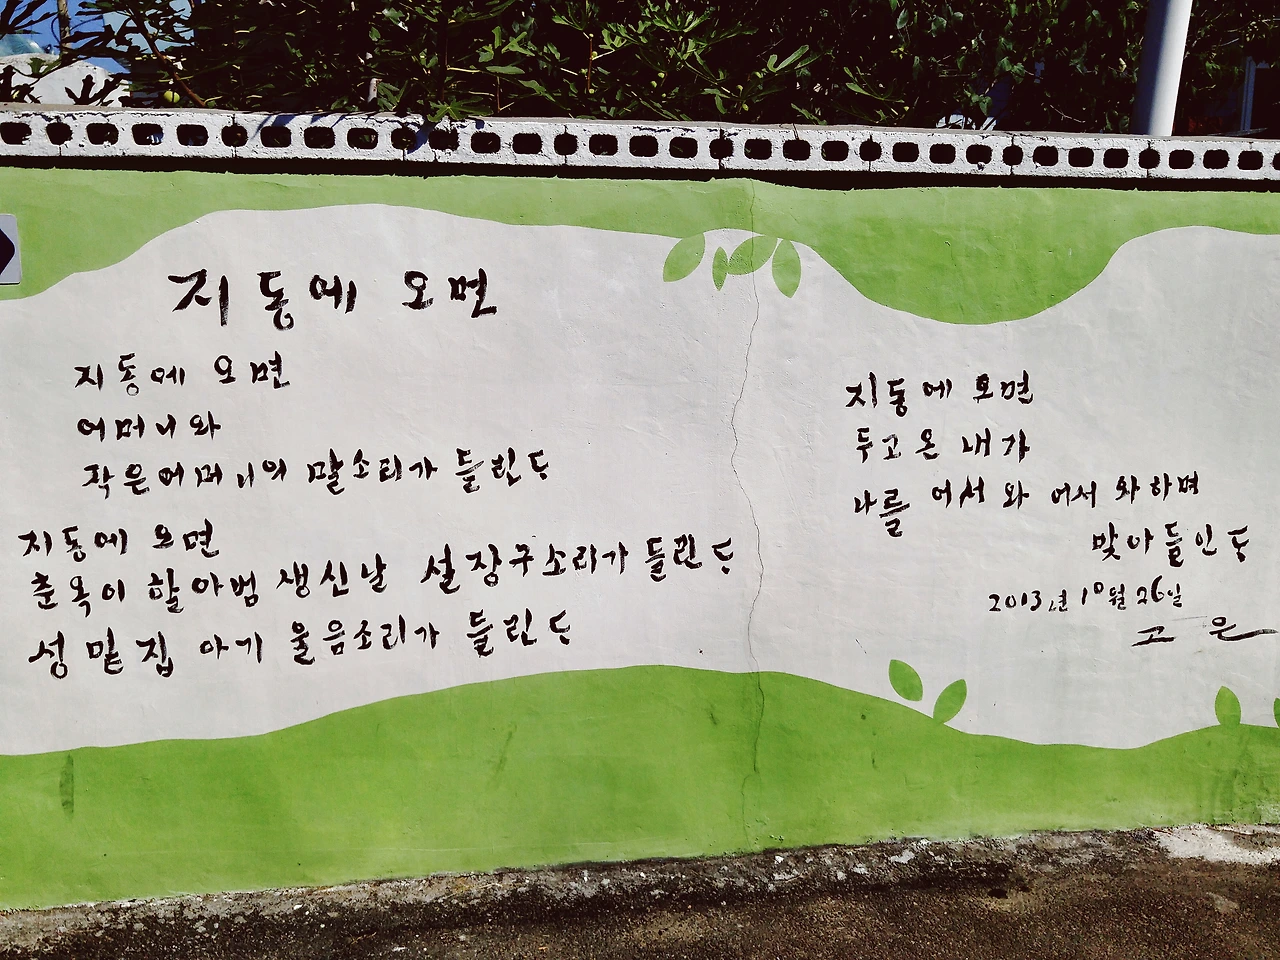 지동에 오면
지동에 오면
어머니와
작은어머니의 말소리가 들린다
지동에 오면
춘옥이 할아범 생신날 설장구소리가 들린다
성 밑 집 아기 울음소리가 들린다
지동에 오면
두고 온 내가
나를 어서 와 어서 와하며
맞아들인다
2013년 10월 26일
고 은